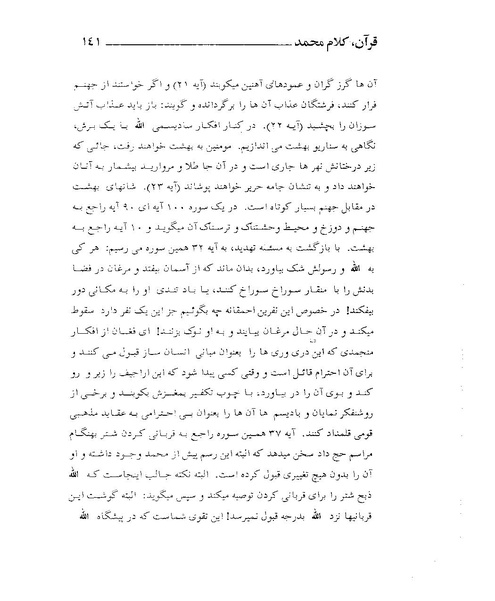 قرآن، کلام محمد ـــــــــــــــــــــــــــــ ۱۴۱
آن ها گرز گران و عمودهای آهنین میکوبند (آیه ۲۱) و اگر خواستند از جهنم
فرار کنند، فرشتگان عذاب آن ها را برگردانده و گویند: باز باید عذاب آتش
سوزان را بچشید (آیه ۲۲). در کنار افکار سادیسمی الله با یک برش،
نگاهی به سناریو بهشت می اندازیم. مومنین به بهشت خواهند رفت، جائی که
زیر درختانش نهر ها جاری است و در آن جا طلا و مروارید بیشمار به آنان
خواهند داد و به تنشان جامه حریر خواهند پوشاند (آیه ۲۳). شانهای بهشت
در مقابل جهنم بسیار کوتاه است. در یک سوره ۱۰۰ آیه ای ۹۰ آیه راجع به
جهنم و دوزخ و محیط وحشتناک و ترسناک آن میگوید و ۱۰ آیه راجع به
بهشت. با بازگشت به مسئله تهدید، به آیه ۳۲ همین سوره می رسیم: هر کی
به الله و رسولش شک بیاورد، بدان ماند که از آسمان بیفتد و مرغان در فضا
بدنش را با منقار سوراخ سوراخ کنند، یا باد تندی او را به مکانی دور
بیفکند! در خصوص این نفرین احمقانه چه بگوئیم جز این یک نفر دارد سقوط
میکند و در آن حال مرغان بیایند و به او نوک بزنند! ای فغان از افکار
متجمدی که این دری وری ها را بعنوان مبانی انسان ساز قبول می کنند و
برای آن احترام قائل است و وقتی کسی پیدا شود که این اراجیف را زیر و رو
کند و بوی آن را در بیاورد، با چوب تکفیر بمغزش بکوبند و برخی از
روشنفکر نمایان و بادیسم ها آن ها را بعنوان بی احترامی به عقاید مذهبی
قومی قلمداد کنند. آیه ۳۷ همین سوره راجع به قربانی کردن شتر بهنگام
مراسم حج داد سخن میدهد که البته این رسم پیش از محمد وجود داشته و او
آن را بدون هیچ تغییری قبول کرده است. البته نکته جالب اینجاست که الله
ذبح شتر را برای قربانی کردن توصیه میکند و سپس میگوید: البته گوشت این
قربانیها نزد الله بدرجه قبول نمیرسد! این تقوی شماست که در پیشگاه الله